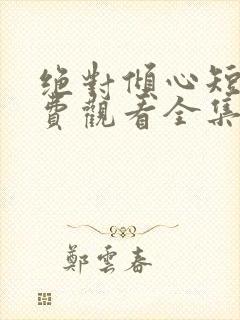 絕對傾心短
費觀看全集
鄭雲春